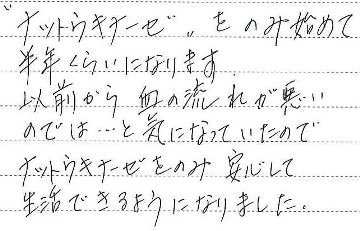 "ナットウキナーゼ"をのみ始めて
半年くらいになります
以前から血の流れが悪い
のでは…と気になっていたので
ナットウキナーゼをのみ安心して
生活できるようになりました。